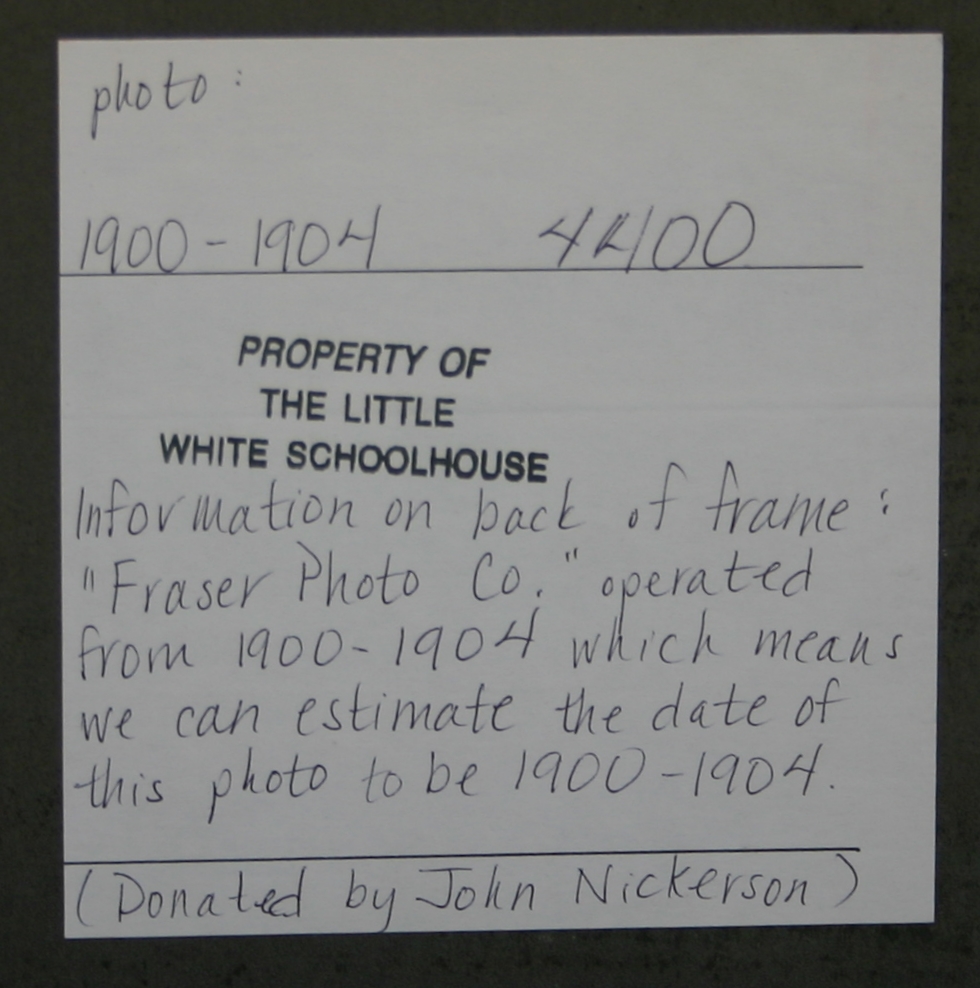 photo:
1900-1904 44100
PROPERTY OF
THE LITTLE
WHITE SCHOOLHOUSE
Information on back of frame:
"Fraser Photo Co." operated
from 1900-1904 which means
we can estimate the date of
this photo to be 1900-1904.
(Donated by John Nickerson)